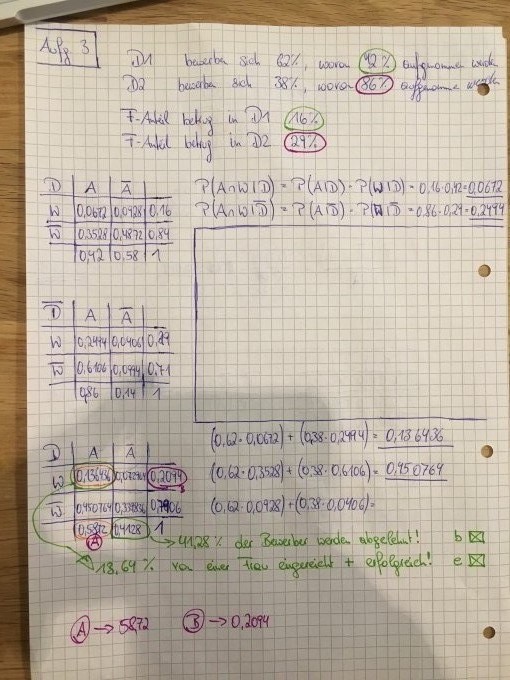 Aufg. 3
D1 bewerben sich 62%, wovon 42% aufgenommen werden
D2 bewerben sich 38%, wovon 86% aufgenommen werden
F-Anteil betrug in D1 16%
F-Anteil betrug in D2 29%
D A A̅
W 0,0672 0,0928 0,16
W̅ 0,3528 0,4872 0,84
0,42 0,58 1
P(A∩W|D) = P(A|D) · P(W|D) = 0,16·0,42 = 0,0672
P(A∩W|D̅) = P(A|D̅) · P(W|D̅) = 0,86·0,29 = 0,2494
D̅ A A̅
W 0,2494 0,0406 0,29
W̅ 0,6106 0,0994 0,71
0,86 0,14 1
D A A̅
W 0,136436 0,2094
W̅ 0,450764 0,7906
0,5872 0,4128 1
A
(0,62·0,0672) + (0,38·0,2494) = 0,136436
(0,62·0,3528) + (0,38·0,6106) = 0,450764
(0,62·0,0928) + (0,38·0,0406) =
→ 41,28% der Bewerber werden abgelehnt! b ☒
13,64% von einer Frau eingereicht + erfolgreich! e ☒
A → 58,72 B → 0,2094